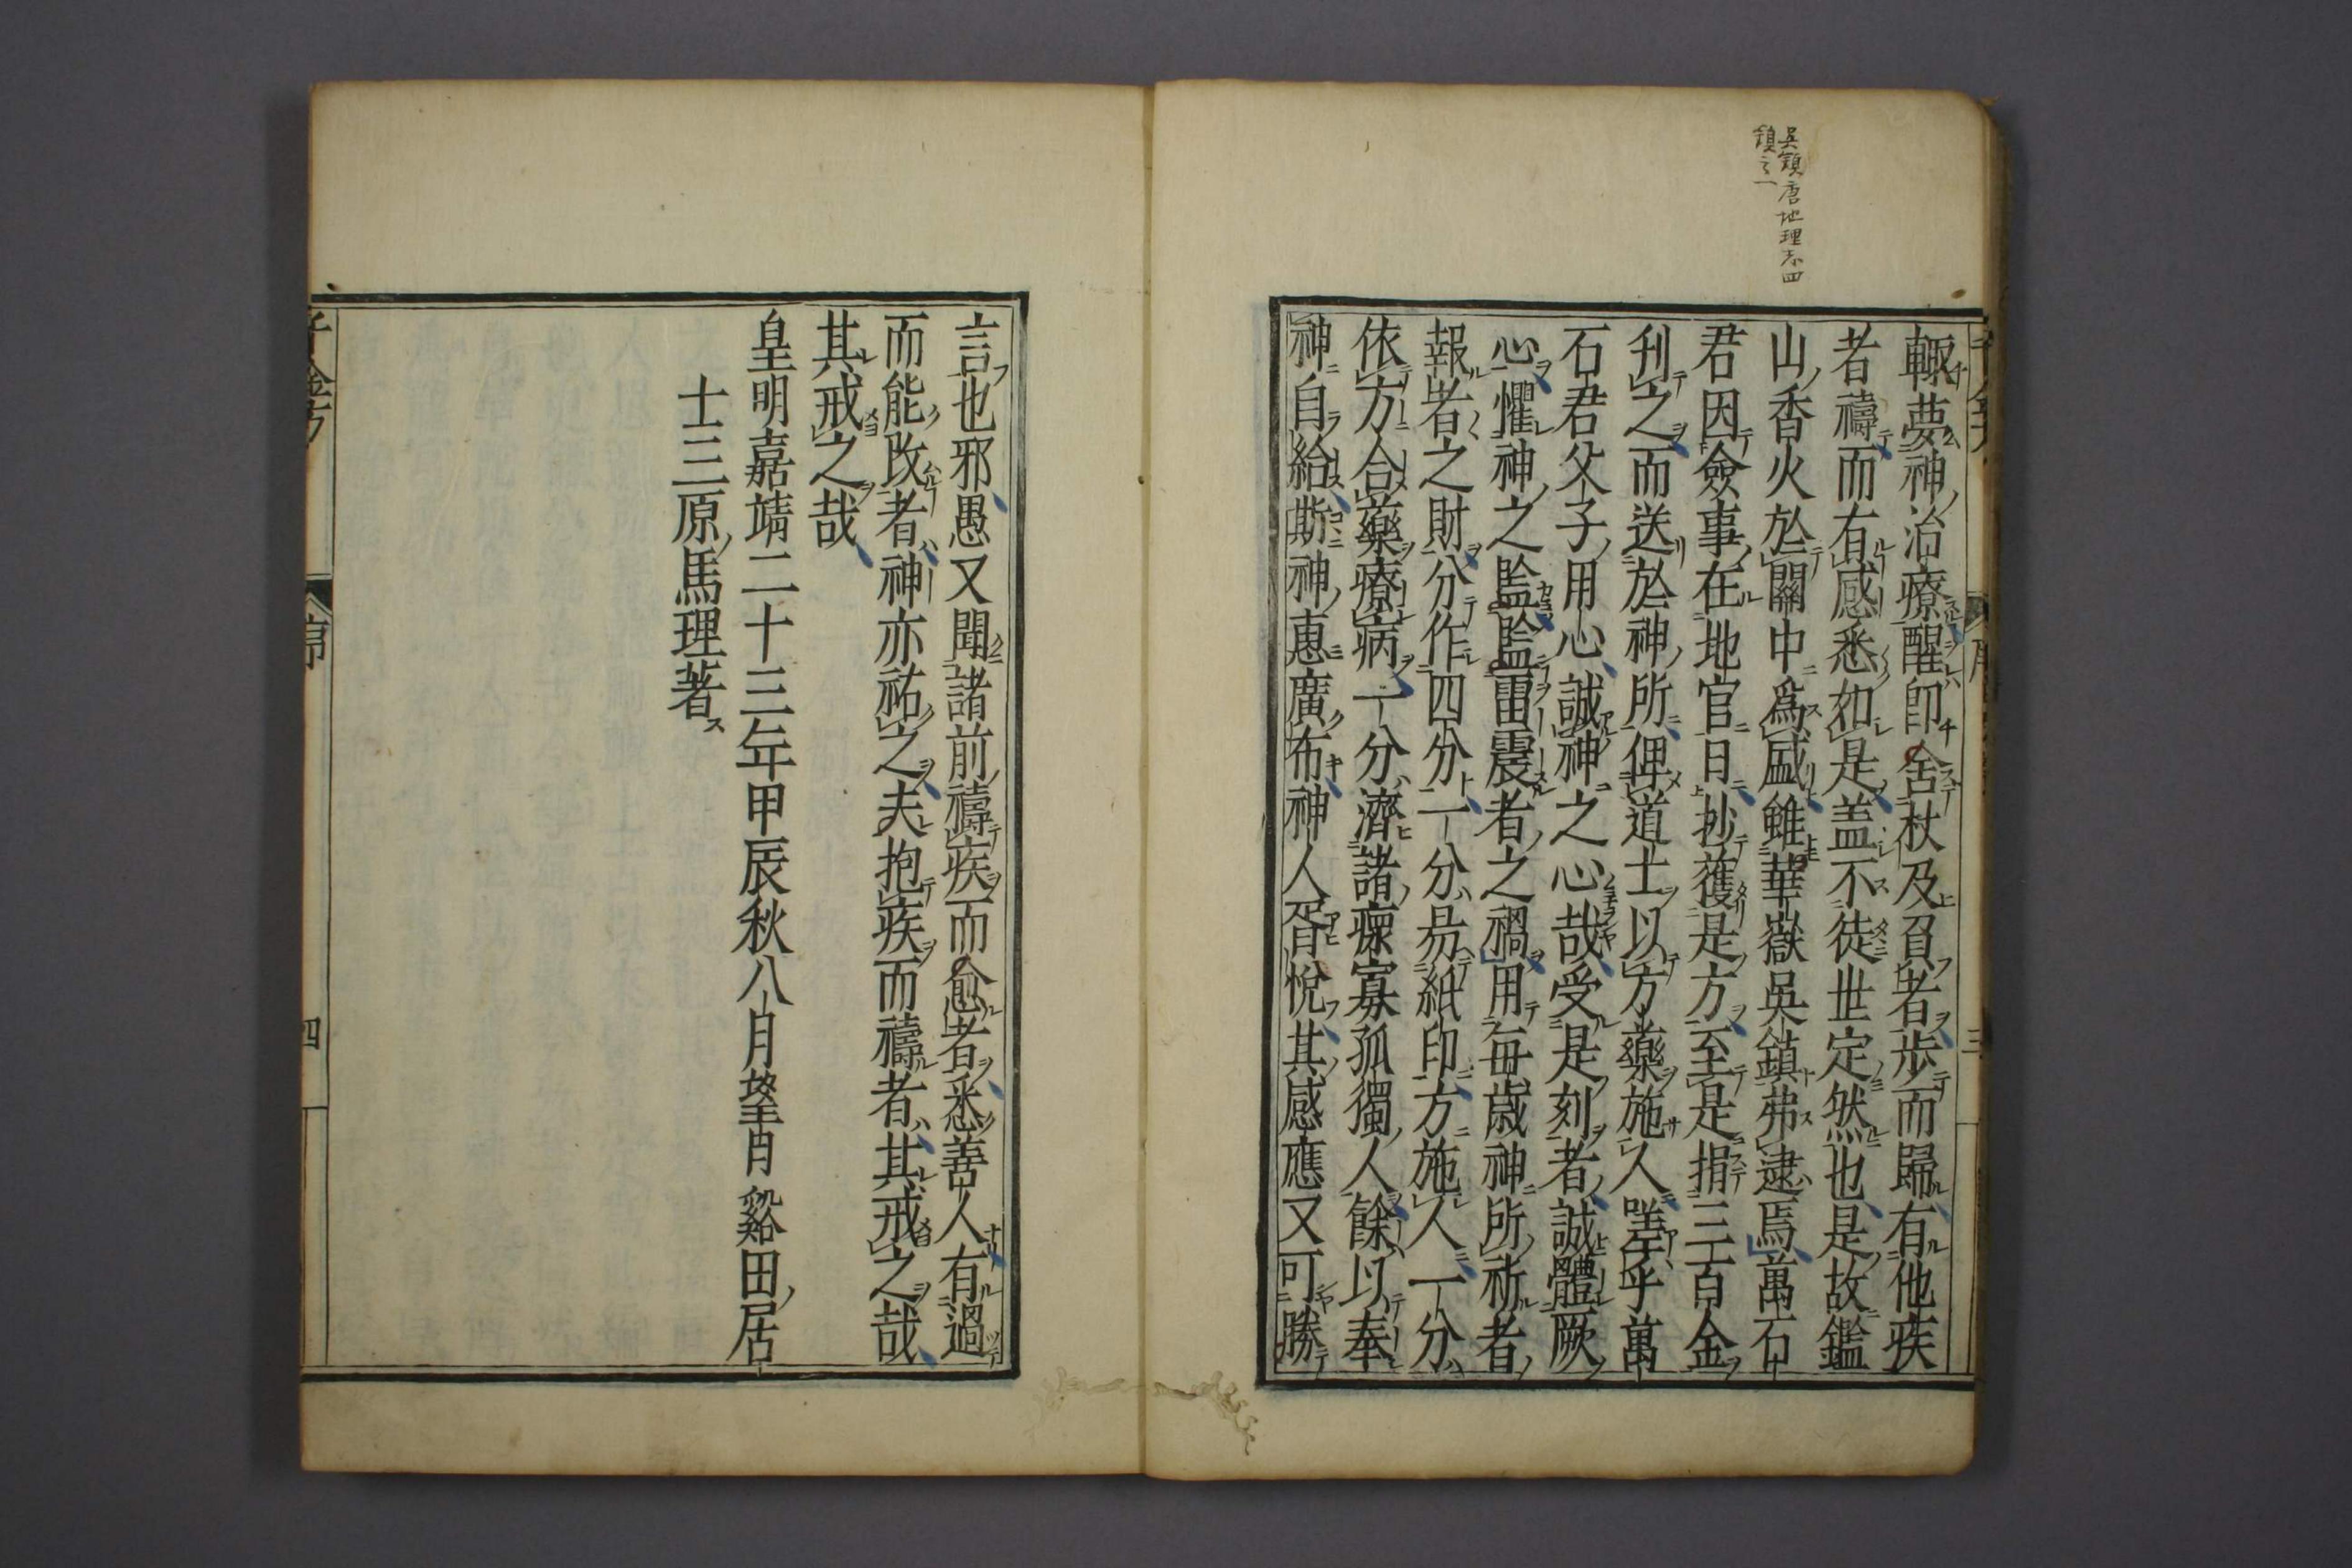 吳鎮唐地理志四
鎮之一
輙夢神治療醒卽舍杖及負者歩而歸有他疾
者禱而有感悉如是盖不徒世定然也是故鑑
山香火於關中爲盛雖華嶽吳鎮弗逮焉萬石
君因僉事在地官日抄獲是方至是捐三百金
刊之而送於神所俾道士以方藥施人嗟乎萬
石君父子用心誠神之心哉受是刻者誠體厥
心懼神之監監雷震者之禍用毎歳神所祈者
報者之財分作四分一分昜紙印方施人一分
依方合藥療病一分濟諸瘝寡孤獨人餘以奉
神自給斯神惠廣布神人胥悅其感應又可勝
言也邪愚又聞諸前禱疾而愈者悉善人有過
而能改者神亦祐之夫抱疾而禱者其戒之哉
其戒之哉
皇明嘉靖二十三年甲辰秋八月望日谿田居
士三原馬理著
序
四